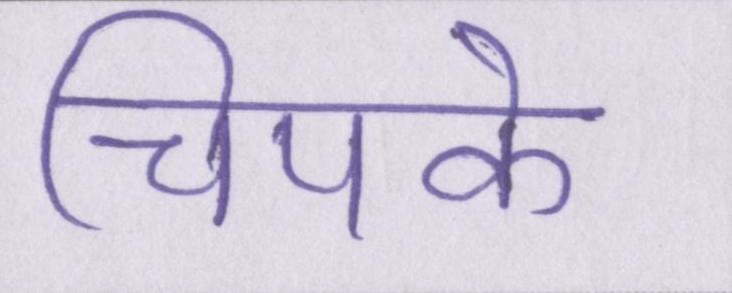 चिपके